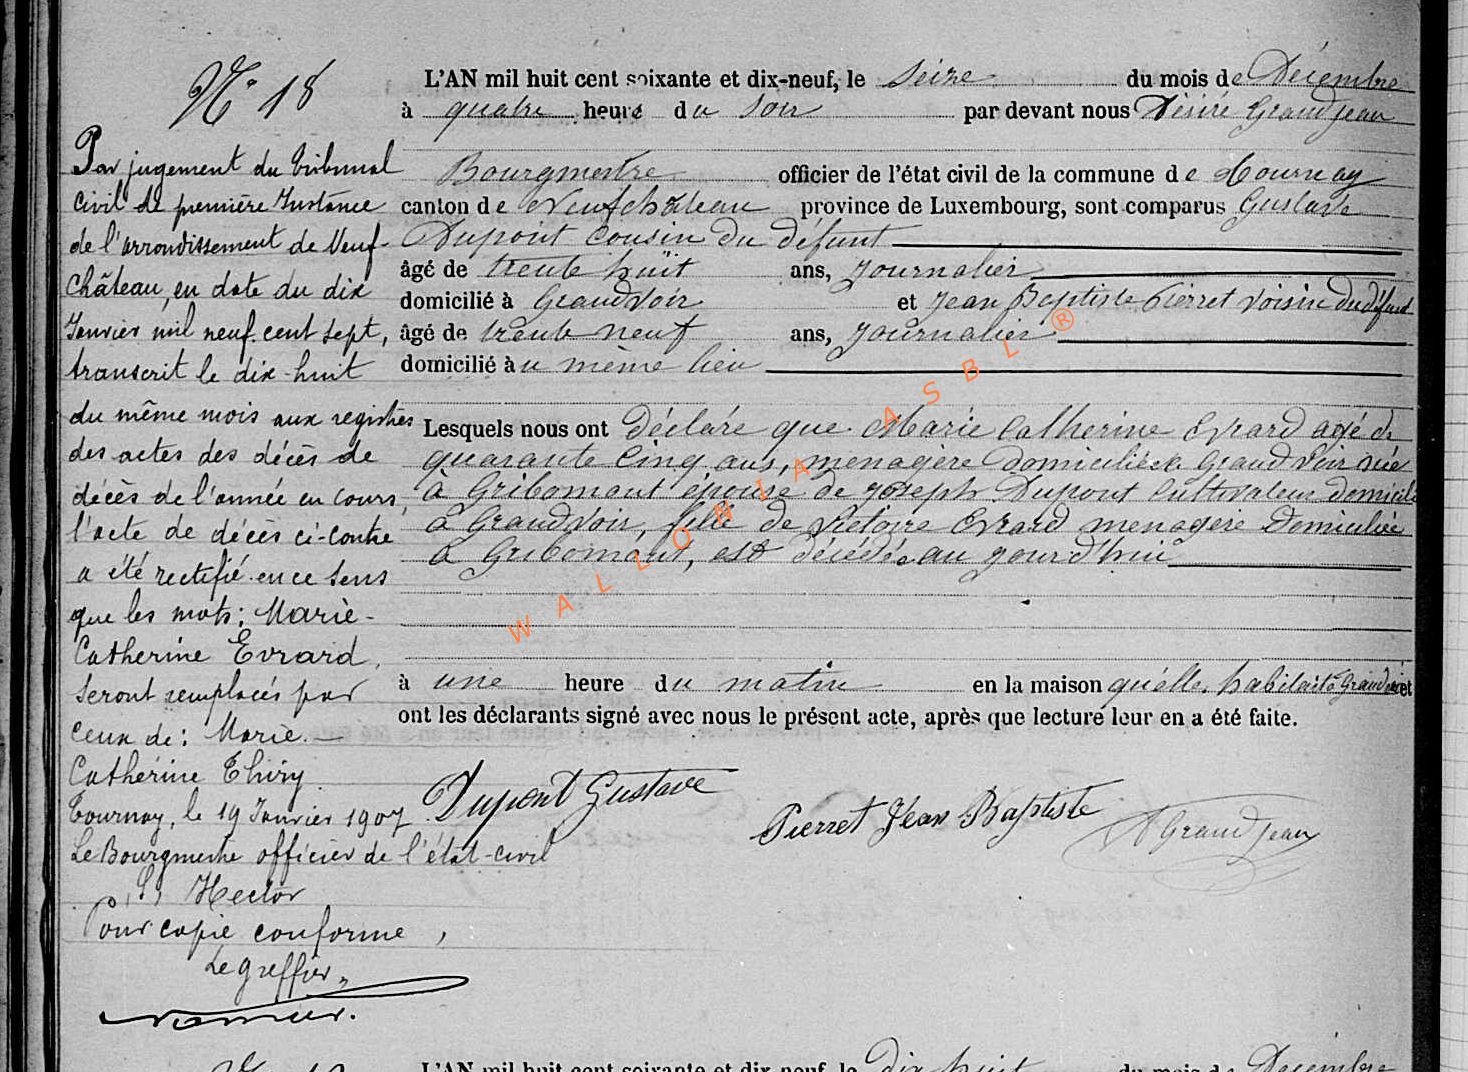 N° 18
Par jugement du tribunal
Civil de première Instance
de l'arrondissement de Neuf-
château, en date du dix
Janvier mil neuf cent sept,
transcrit le dix-huit
du même mois aux registres
des actes des décès de
décès de l'année en cours,
l'acte de décès ci-contre
a été rectifié en ce sens
que les mots: Marie-
Catherine Evrard,
seront remplacés par
ceux de: Marie-
Catherine Thiry
Tournay, le 19 Janvier 1907
Le Bourgmestre officier de l'état-civil
(s) Hector
Pour copie conforme,
Le greffier,
L'AN mil huit cent soixante et dix-neuf, le seize du mois de Décembre
à quatre heure du soir par devant nous Désiré Grandjean
Bourgmestre officier de l'état civil de la commune de Tournay
canton de Neufchâteau province de Luxembourg, sont comparus Gustave
Dupont cousin du défunt
âgé de trente huit ans, journalier
domicilié à Grandvoir et Jean Baptiste Pierret voisin du défunt
âgé de trente neuf ans, journalier
domicilié àu même lieu
Lesquels nous ont déclaré que Marie Catherine Evrard agé de
quarante cinq ans, menagère domiciliée à Grandvoir née
à Gribomont épouse de Joseph Dupont cultivateur domicilié
à Grandvoir, fille de Victoire Evrard menagère domiciliée
à Gribomont, est décédée au jourd'hui
à une heure du matin en la maison quélle habitait à Grandvoir et
ont les déclarants signé avec nous le présent acte, après que lecture leur en a été faite.
Dupont Gustave
Pierret Jean Baptiste
D Grandjean
WALLONIA ASBL ®
L'AN mil huit cent soixante et dix-neuf, le dix huit du mois de Décembre